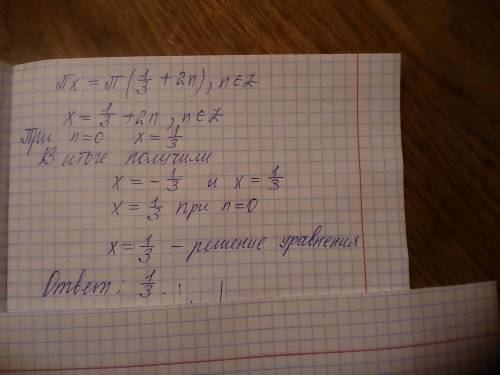 πx = π(1/3 + 2n), n∈Z
x = 1/3 + 2n, n∈Z
При n=0 x = 1/3
В итоге получили
x = -1/3 и x = 1/3
x = 1/3 при n=0
x = 1/3 - решение уравнения
Ответ: 1/3.